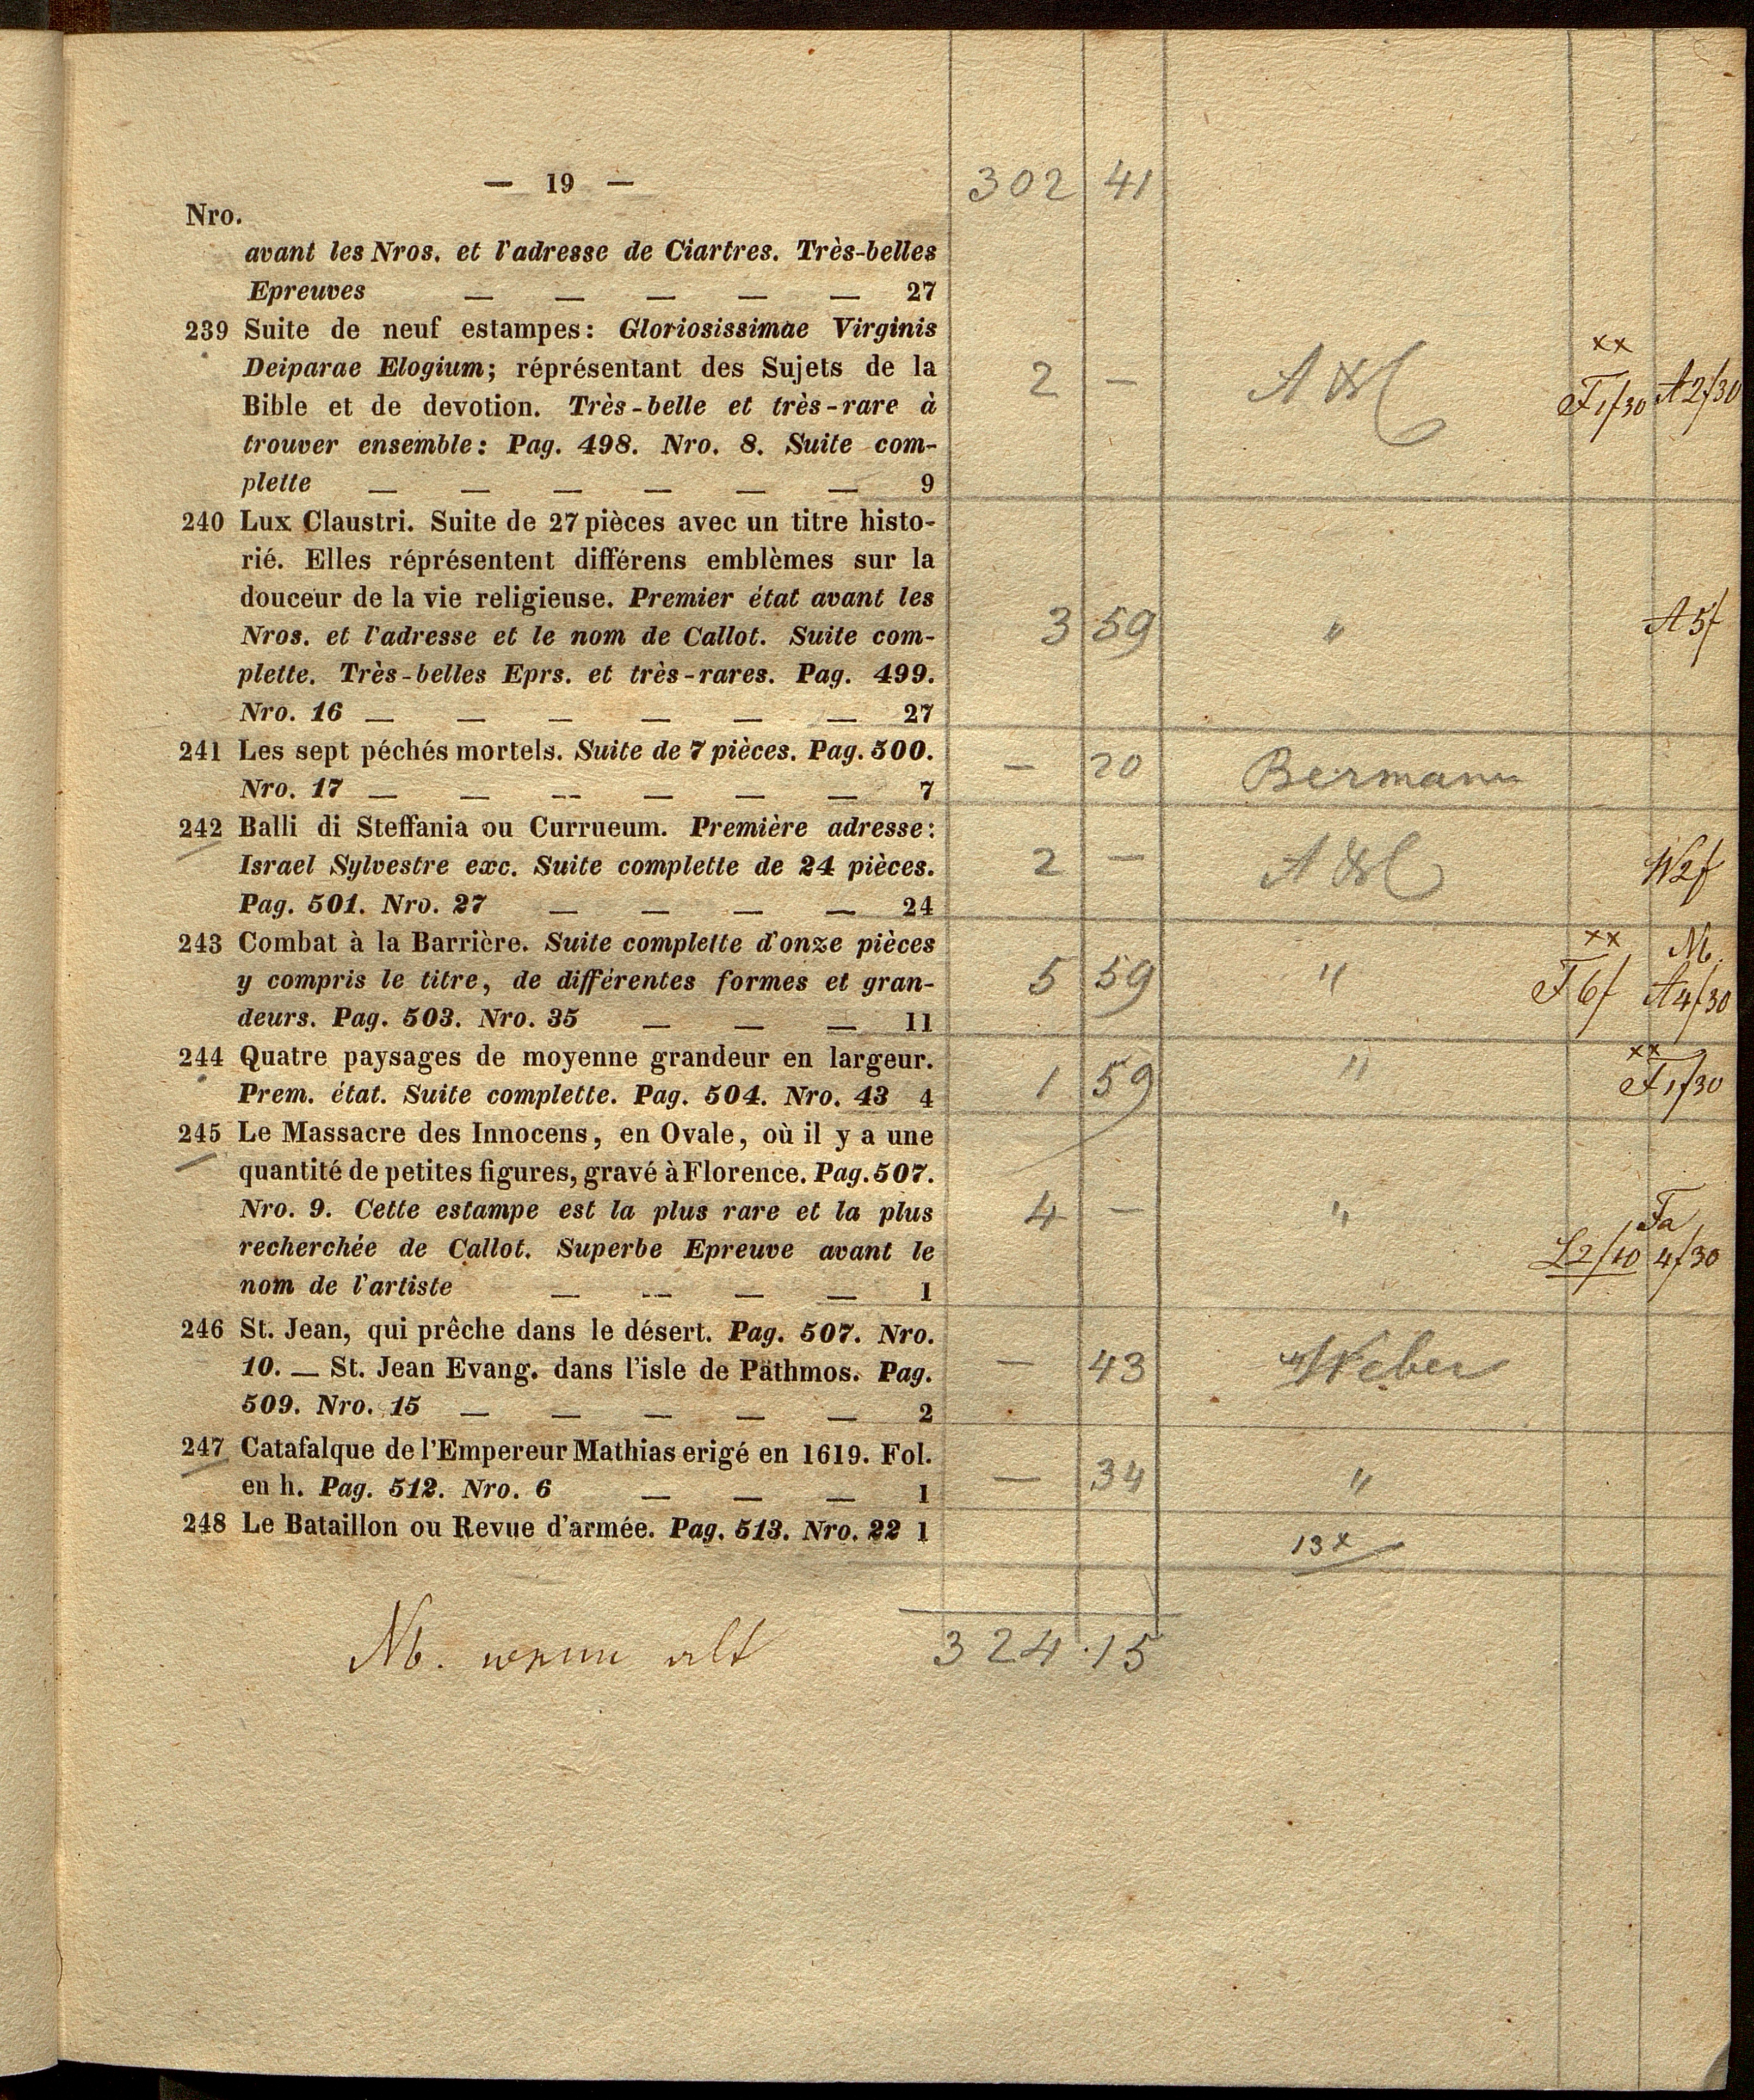 — 19 — 302 41
Nro.
avant les Nros. et l'adresse de Ciartres. Très-belles
Epreuves — — — — — 27
239 Suite de neuf estampes: Gloriosissimae Virginis
Deiparae Elogium; réprésentant des Sujets de la
Bible et de devotion. Très-belle et très-rare à
trouver ensemble: Pag. 498. Nro. 8. Suite com-
plette — — — — — — 9
2 —
xx
F 1f30 A 2f30
240 Lux Claustri. Suite de 27 pièces avec un titre histo-
rié. Elles réprésentent différens emblèmes sur la
douceur de la vie religieuse. Premier état avant les
Nros. et l'adresse et le nom de Callot. Suite com-
plette. Très-belles Eprs. et très-rares. Pag. 499.
Nro. 16 — — — — — — 27
3 59 " A 5f
241 Les sept péchés mortels. Suite de 7 pièces. Pag. 500.
Nro. 17 — — — — — — 7
— 20 Bermann
242 Balli di Steffania ou Currueum. Première adresse:
Israel Sylvestre exc. Suite complette de 24 pièces.
Pag. 501. Nro. 27 — — — — 24
2 — W 2f
243 Combat à la Barrière. Suite complette d'onze pièces
y compris le titre, de différentes formes et gran-
deurs. Pag. 503. Nro. 35 — — — 11
xx Nb.
5 59 " F 6f A 4f30
244 Quatre paysages de moyenne grandeur en largeur.
Prem. état. Suite complette. Pag. 504. Nro. 43 4
xx
1 59 " F 1f30
245 Le Massacre des Innocens, en Ovale, où il y a une
quantité de petites figures, gravé à Florence. Pag. 507.
Nro. 9. Cette estampe est la plus rare et la plus
recherchée de Callot. Superbe Epreuve avant le
nom de l'artiste — — — — 1
4 — " Fa
L 2f10 4f30
246 St. Jean, qui prêche dans le désert. Pag. 507. Nro.
10. — St. Jean Evang. dans l'isle de Päthmos. Pag.
509. Nro. 15 — — — — — 2
— 43 Weber
247 Catafalque de l'Empereur Mathias erigé en 1619. Fol.
en h. Pag. 512. Nro. 6 — — — 1
— 34 "
248 Le Bataillon ou Revue d'armée. Pag. 513. Nro. 22 1
13x
Nb. wenn alt 324.15